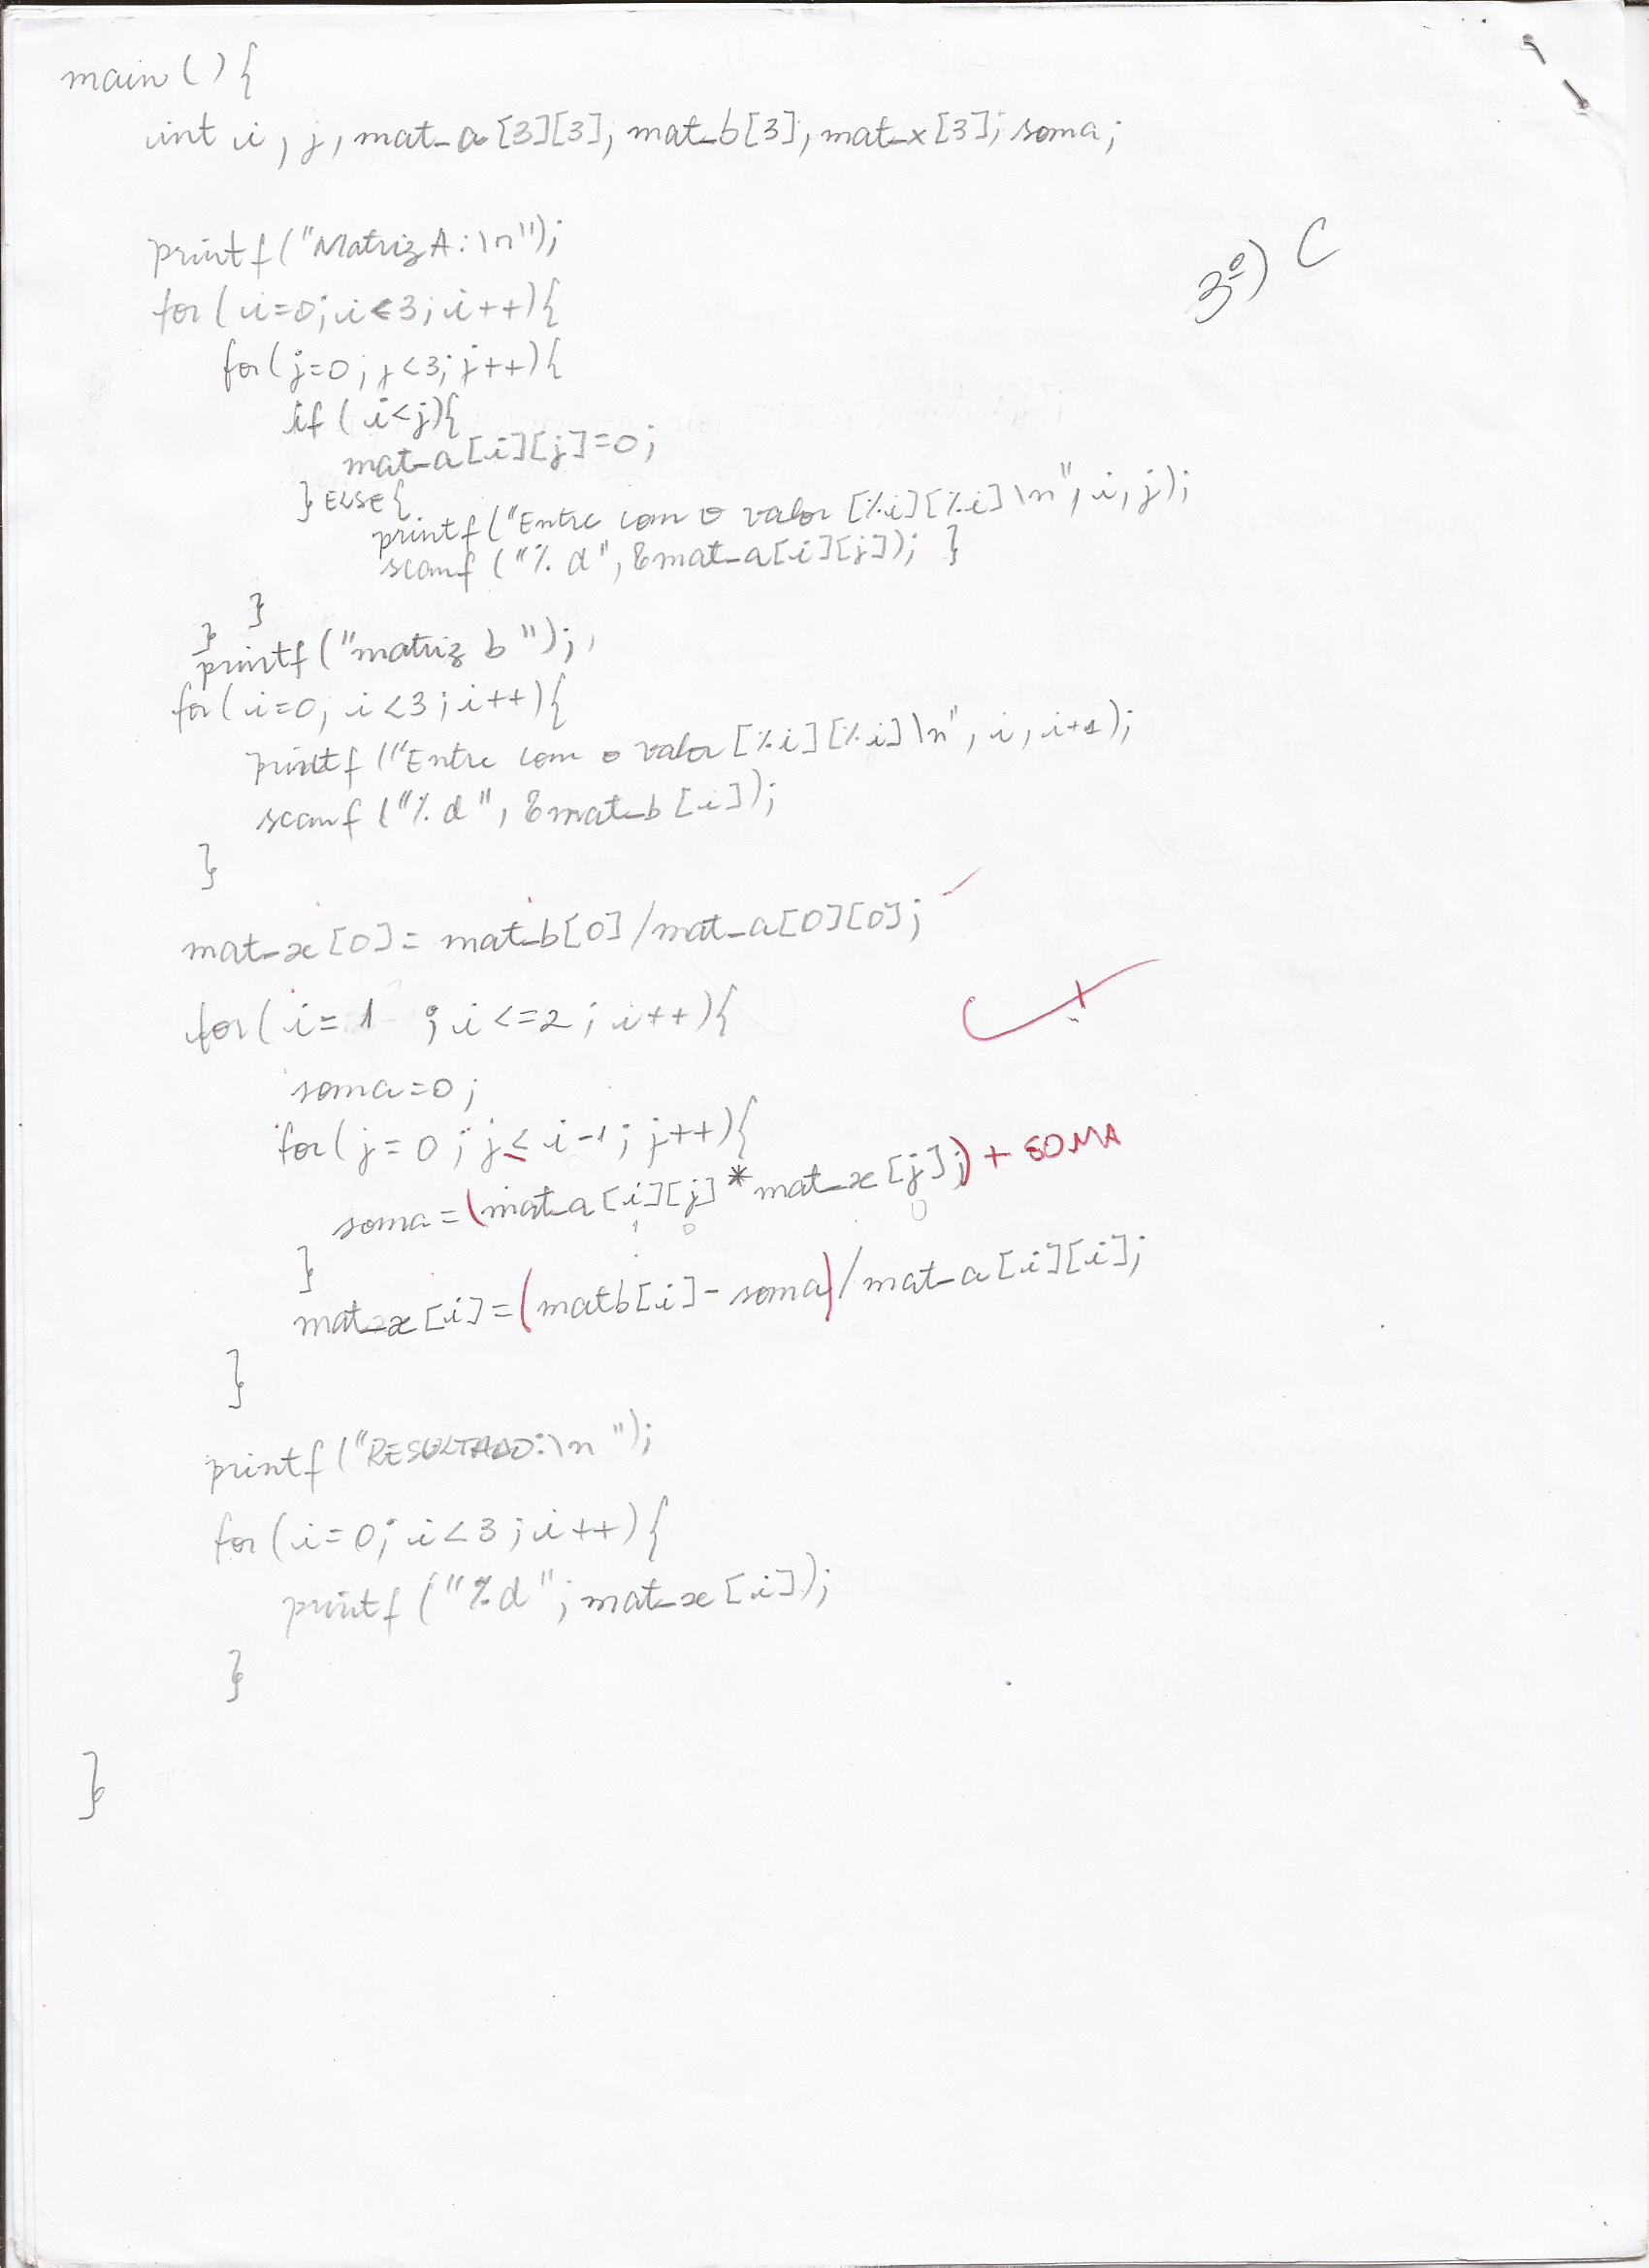 main () {
int i, j, mat_a [3][3]; mat_b[3]; mat_x[3]; soma;
printf ("Matriz A: \n");
3º) C
for ( i=0; i<3; i++){
for (j=0; j<3; j++){
if ( i<j){
mat_a[i][j]=0;
} ELSE {
printf ("Entre com o valor [%i][%i] \n", i, j);
scanf ("%d", &mat_a[i][j]); }
}
}
printf ("matriz b ");
for ( i=0; i<3; i++){
printf ("Entre com o valor [%i][%i] \n", i, i+1);
scanf ("%d", &mat_b [i]);
}
mat_x [0] = mat_b[0] / mat_a[0][0];
for ( i= 1 ; i<=2; i++){
soma=0;
for ( j=0; j≤ i-1; j++){
soma = (mat_a [i][j] * mat_x [j];) + SOMA
1 0 0
}
mat_x [i] = (matb[i] - soma) / mat_a [i][i];
}
printf ("RESULTADO:\n ");
for ( i=0; i<3; i++){
printf ("%d"; mat_x [i]);
}
}